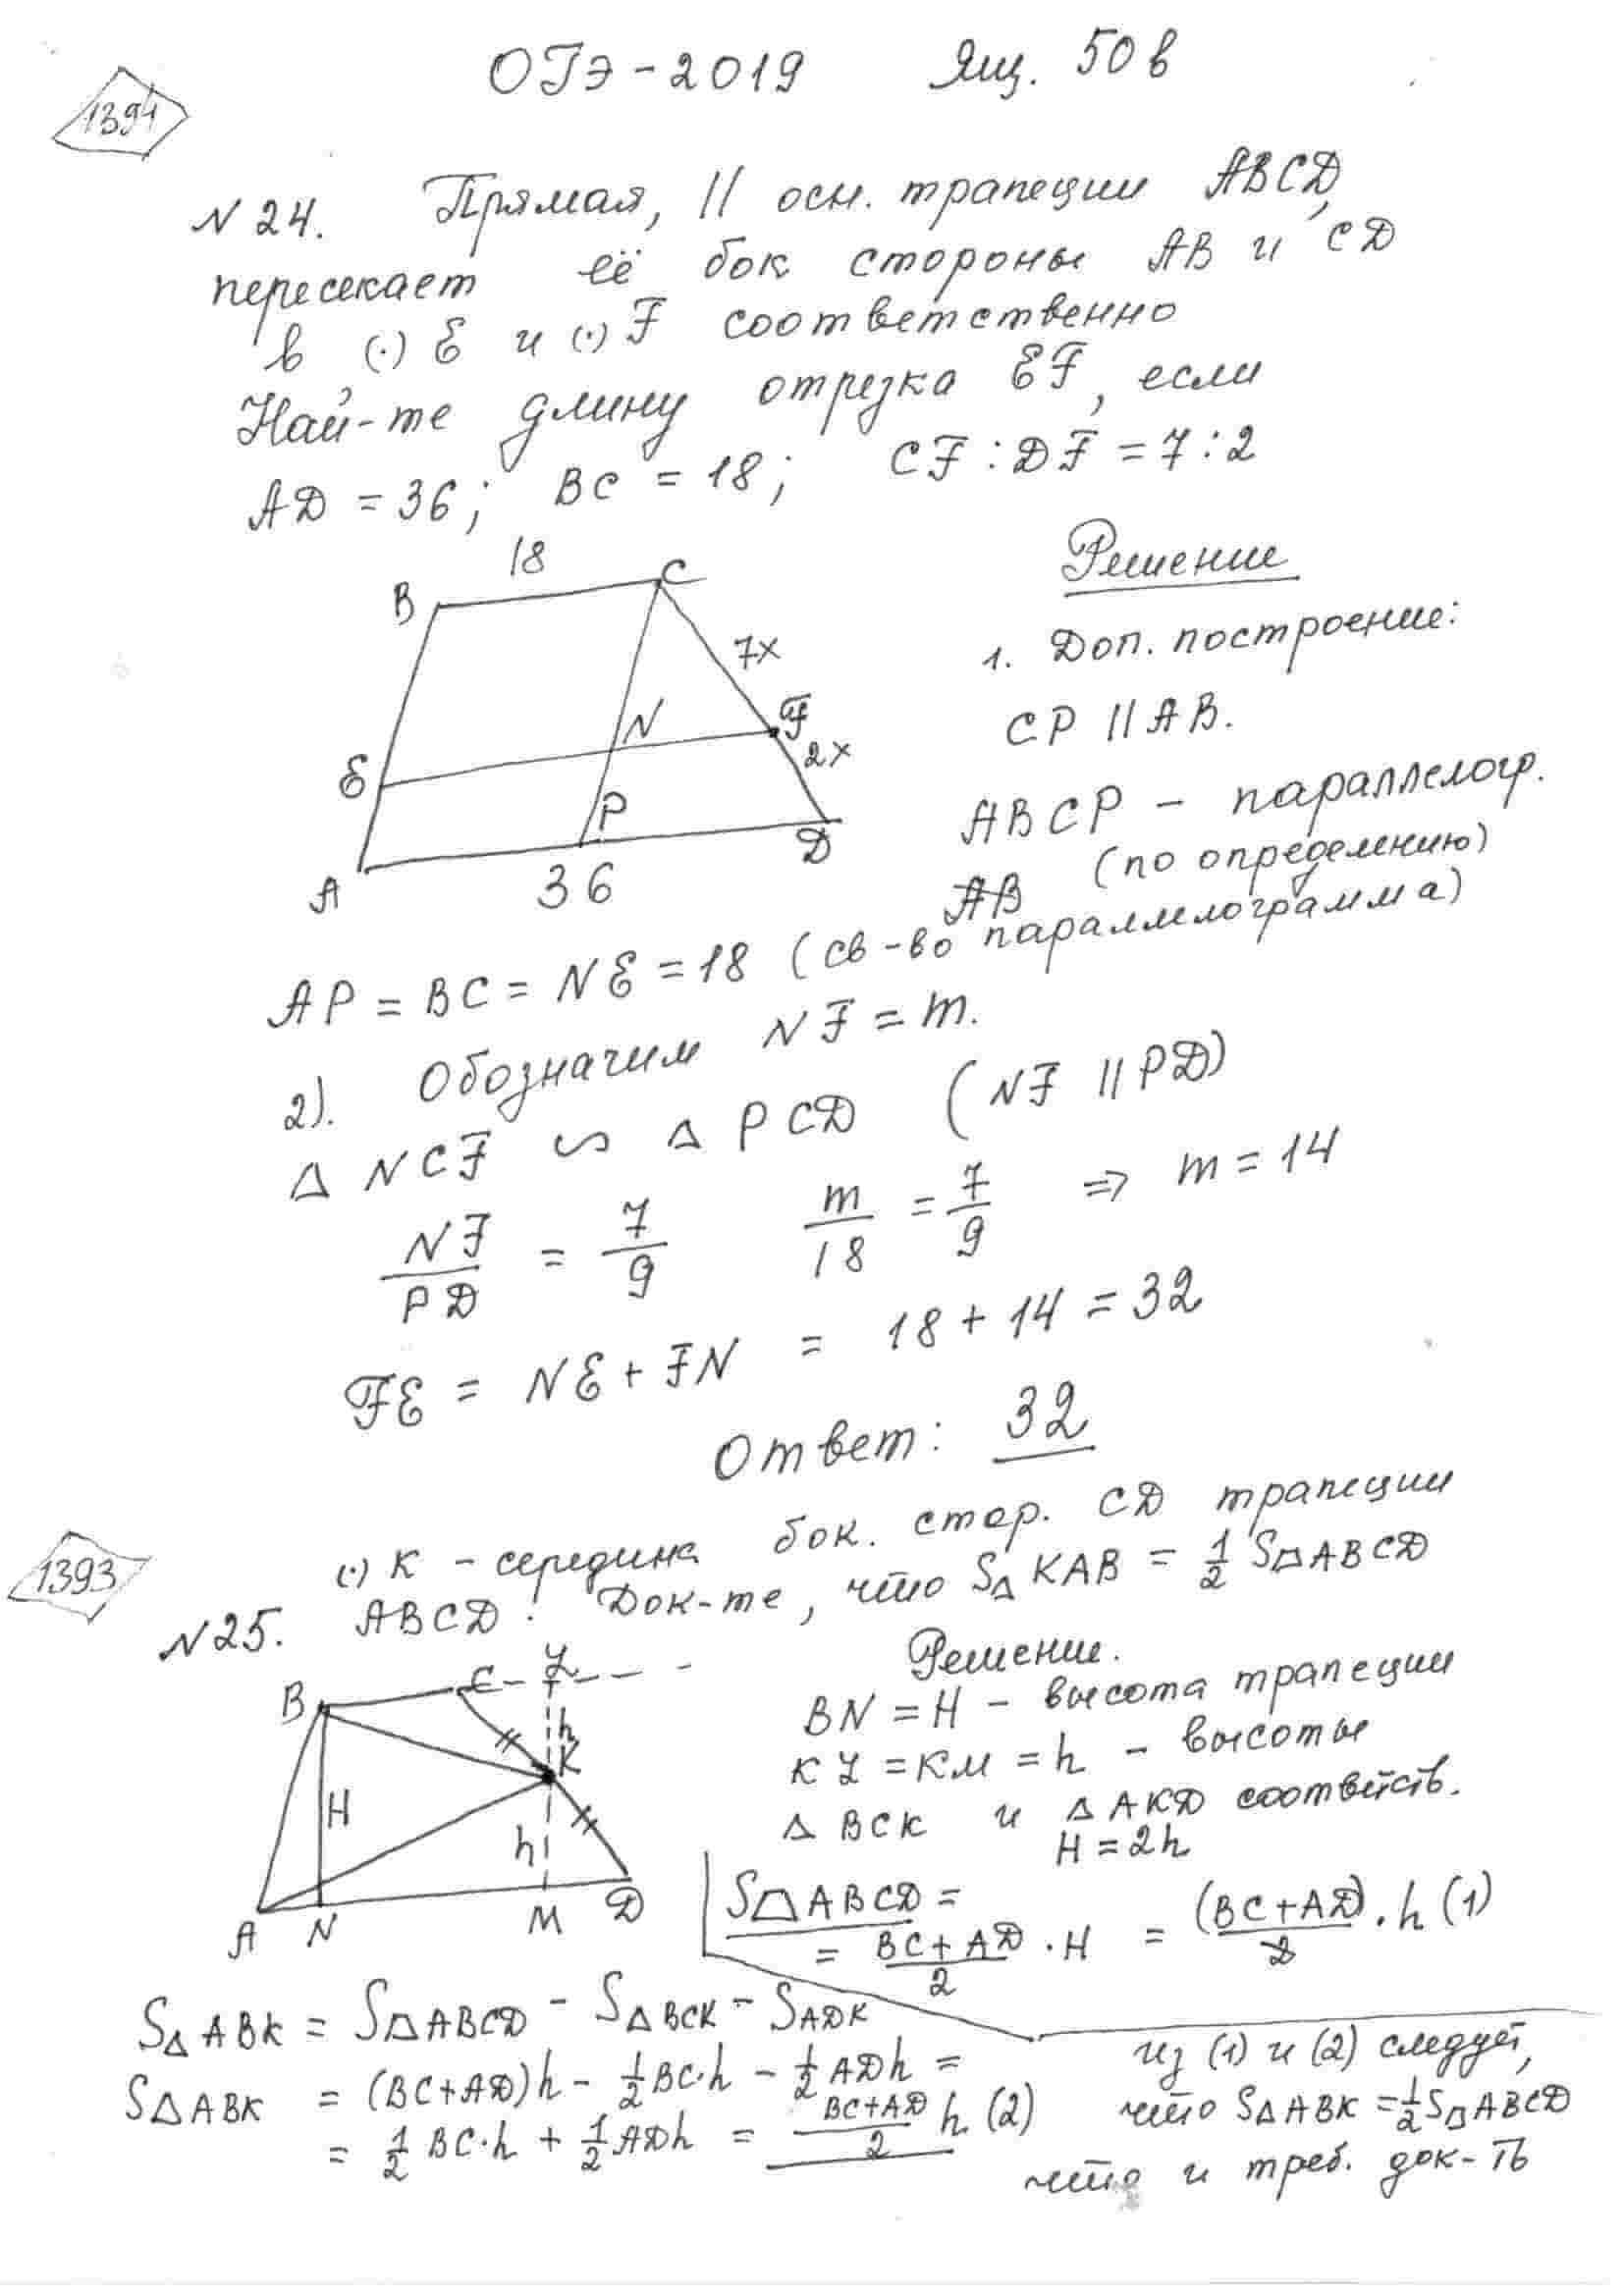 ОГЭ-2019 Ящ. 50 в
1394
N 24. Прямая, || осн. трапеции ABCD,
пересекает её бок стороны AB и CD
в (·) E и (·) F соответственно
Най-те длину отрезка EF, если
AD = 36; BC = 18; CF : DF = 7 : 2
18
B C
7x
N F
2x
E
P
A D
36
Решение
1. Доп. построение:
CP || AB.
ABCP – параллелогр.
AB (по определению)
AP = BC = NE = 18 (св-во параллелограмма)
2). Обозначим NF = m.
Δ NCF ∽ Δ PCD (NF || PD)
NF/PD = 7/9 m/18 = 7/9 ⇒ m = 14
FE = NE + FN = 18 + 14 = 32
Ответ: 32
1393
(·) K – середина бок. стор. CD трапеции
N 25. ABCD. Док-те, что SΔ KAB = 1/2 S⏢ABCD
B C L
h
K
H
h
A N M D
Решение.
BN = H – высота трапеции
KL = KM = h – высоты
Δ BCK и Δ AKD соответств.
H = 2h
S⏢ABCD =
= (BC + AD)/2 · H = (BC + AD)/2 · h (1)
SΔ ABK = S⏢ABCD – SΔ BCK – SADK
SΔ ABK = (BC+AD)h – 1/2 BC·h – 1/2 ADh =
= 1/2 BC·h + 1/2 ADh = (BC+AD)/2 h (2)
из (1) и (2) следует,
что SΔ ABK = 1/2 S⏢ABCD
что и треб. док-ть